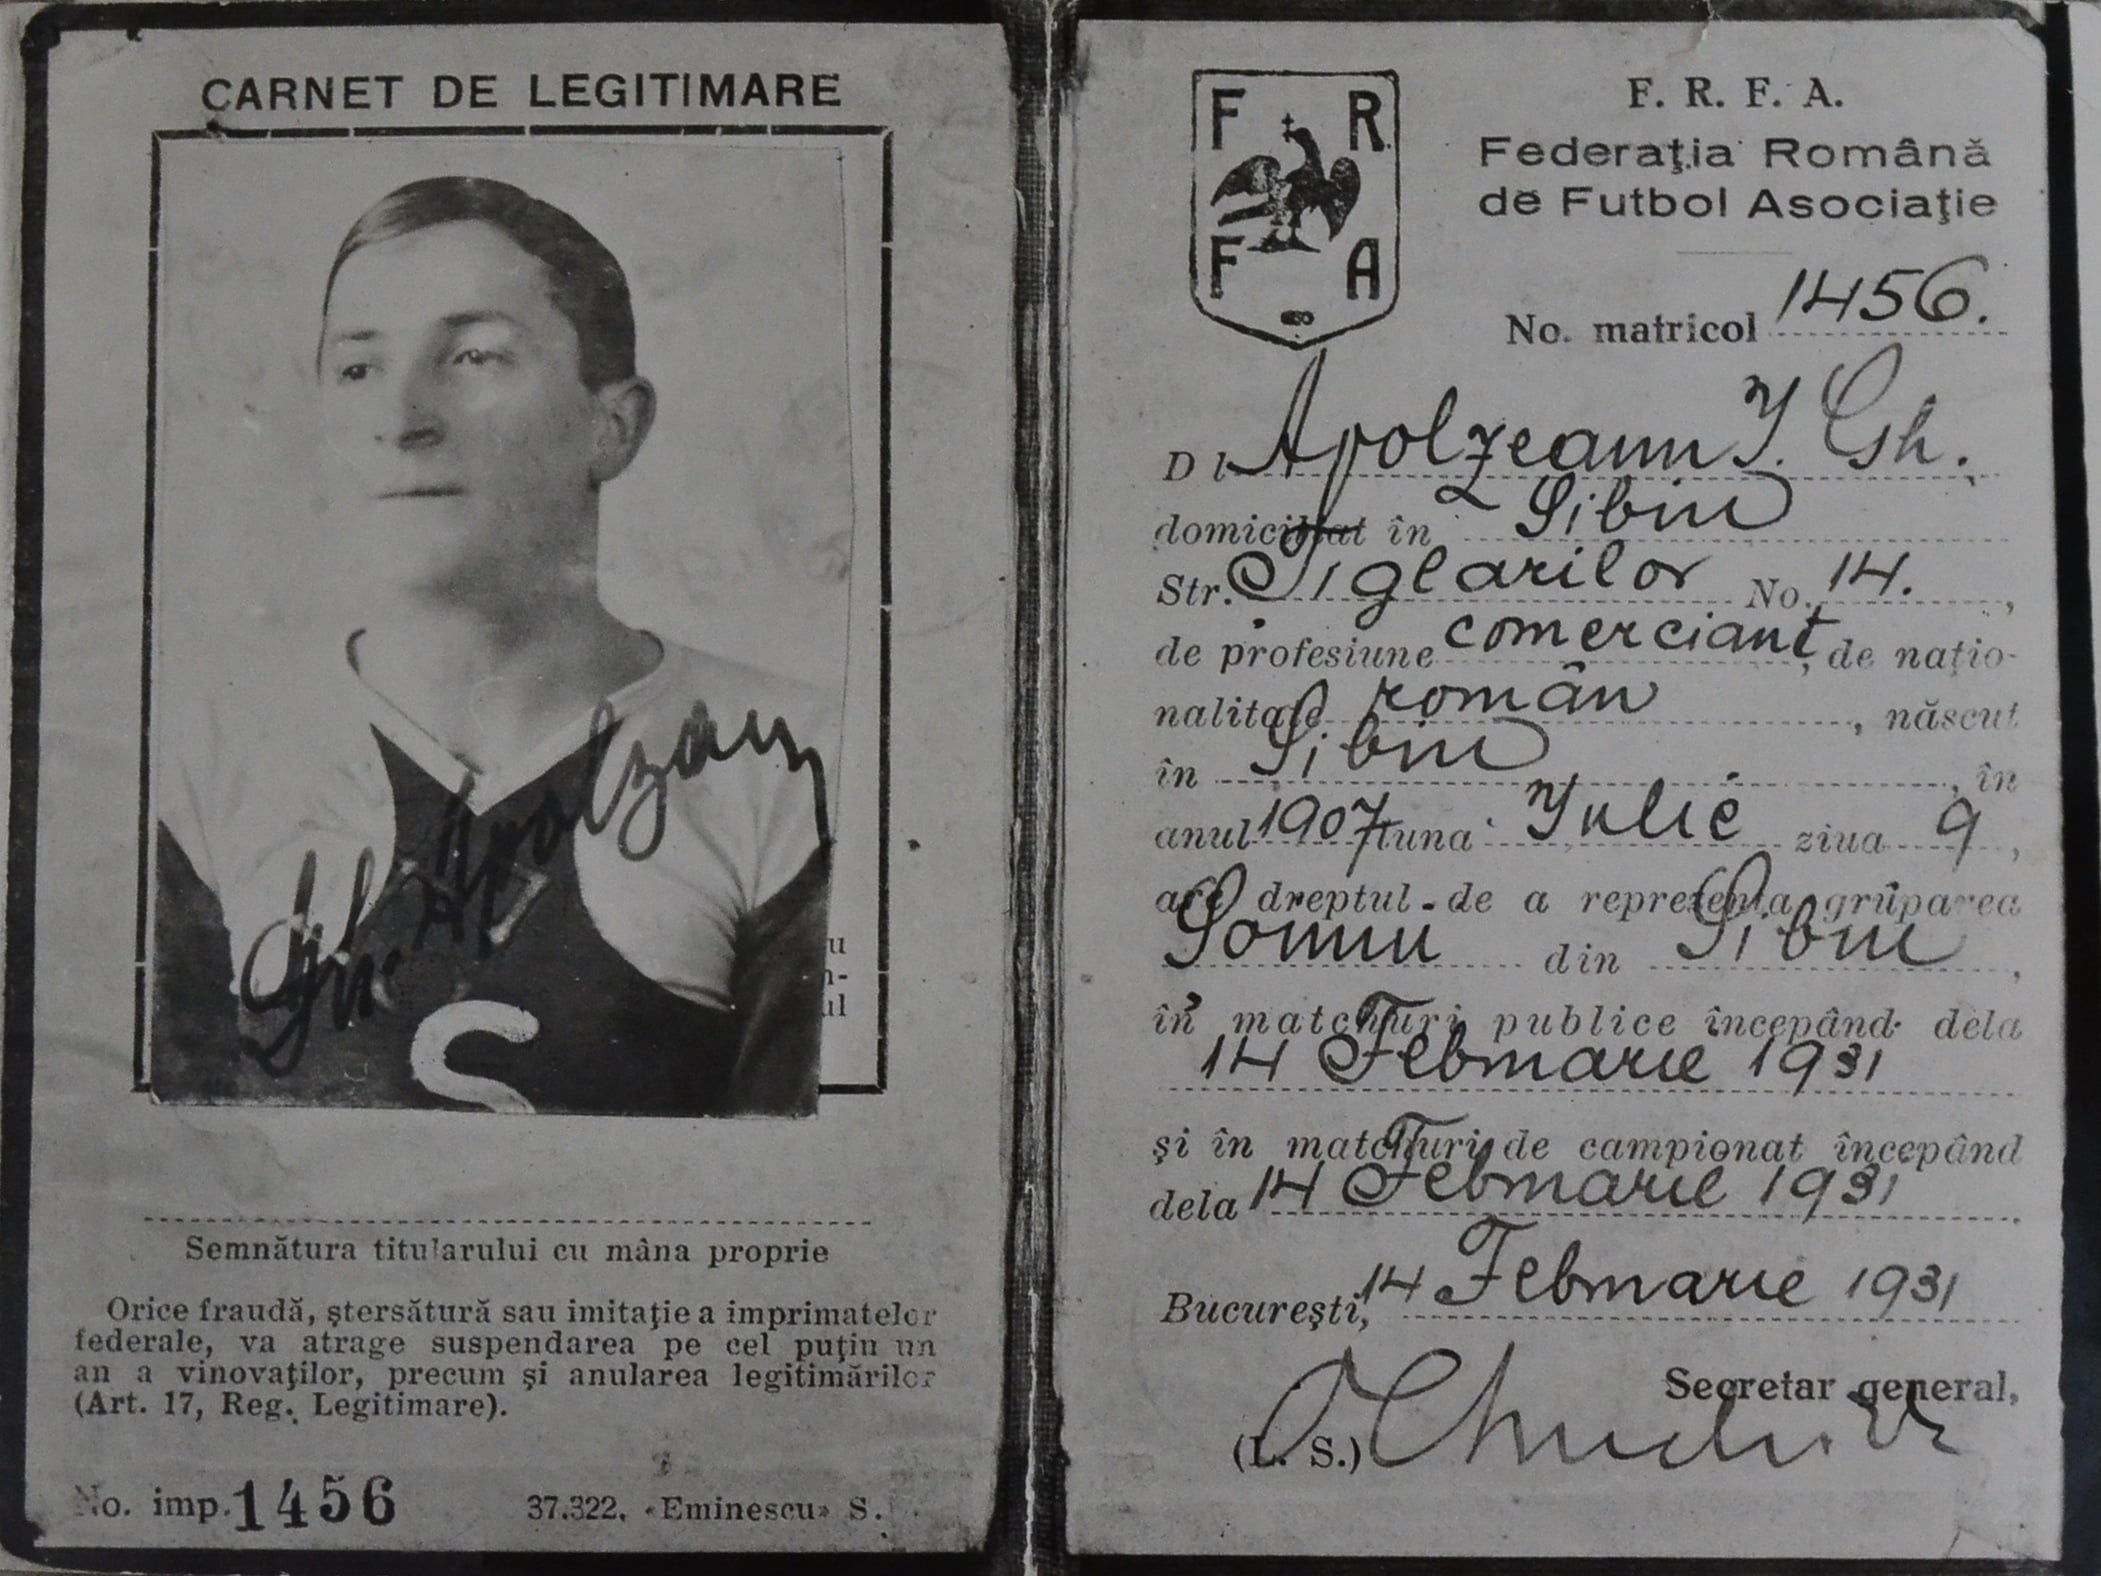 CARNET DE LEGITIMARE
Gh. Apolzan
S
u
n-
ul
Semnătura titularului cu mâna proprie
Orice fraudă, ştersătură sau imitaţie a imprimatelor
federale, va atrage suspendarea pe cel puţin un
an a vinovaţilor, precum şi anularea legitimărilor
(Art. 17, Reg. Legitimare).
No. imp. 1456
37.322. «Eminescu» S.
F R
F A
F. R. F. A.
Federaţia Română
de Futbol Asociaţie
No. matricol 1456.
D l Apolzeanu I. Gh.
domiciliat în Sibiu
Str. Ţiglarilor No. 14.,
de profesiune comerciant, de naţio-
nalitate român, născut
în Sibiu, în
anul 1907 luna Iulie ziua 9,
are dreptul de a reprezenta gruparea
Şoimii din Sibiu,
în matchuri publice începând dela
14 Februarie 1931
şi în matchuri de campionat începând
dela 14 Februarie 1931.
Bucureşti, 14 Februarie 1931
Secretar general,
(L. S.)